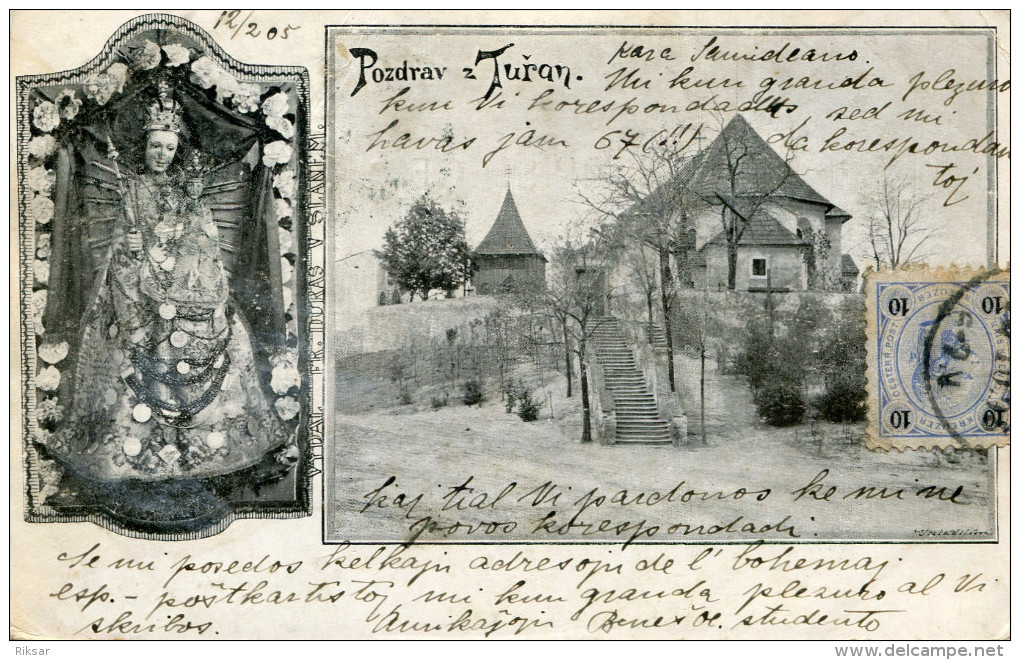 12/2 05
Pozdrav z Tuřan.
VYDAL FR. DURAS V SLANÉM.
Kara Samideano.
Mi kun granda plezuro
kun Vi korespondadus sed mi
havas jam 67 (!!) da korespondan
toj
kaj tial Vi pardonos ke mi ne
povos korespondadi.
Se mi posedos kelkajn adresojn de l' bohemaj
esp. - poŝtkartistoj mi kun granda plezuro al Vi
skribos. Amikaĵojn Beneš studento
10 KREUZER 10
OESTERR. POST
10 KREUZER 10
Riksar
www.delcampe.net